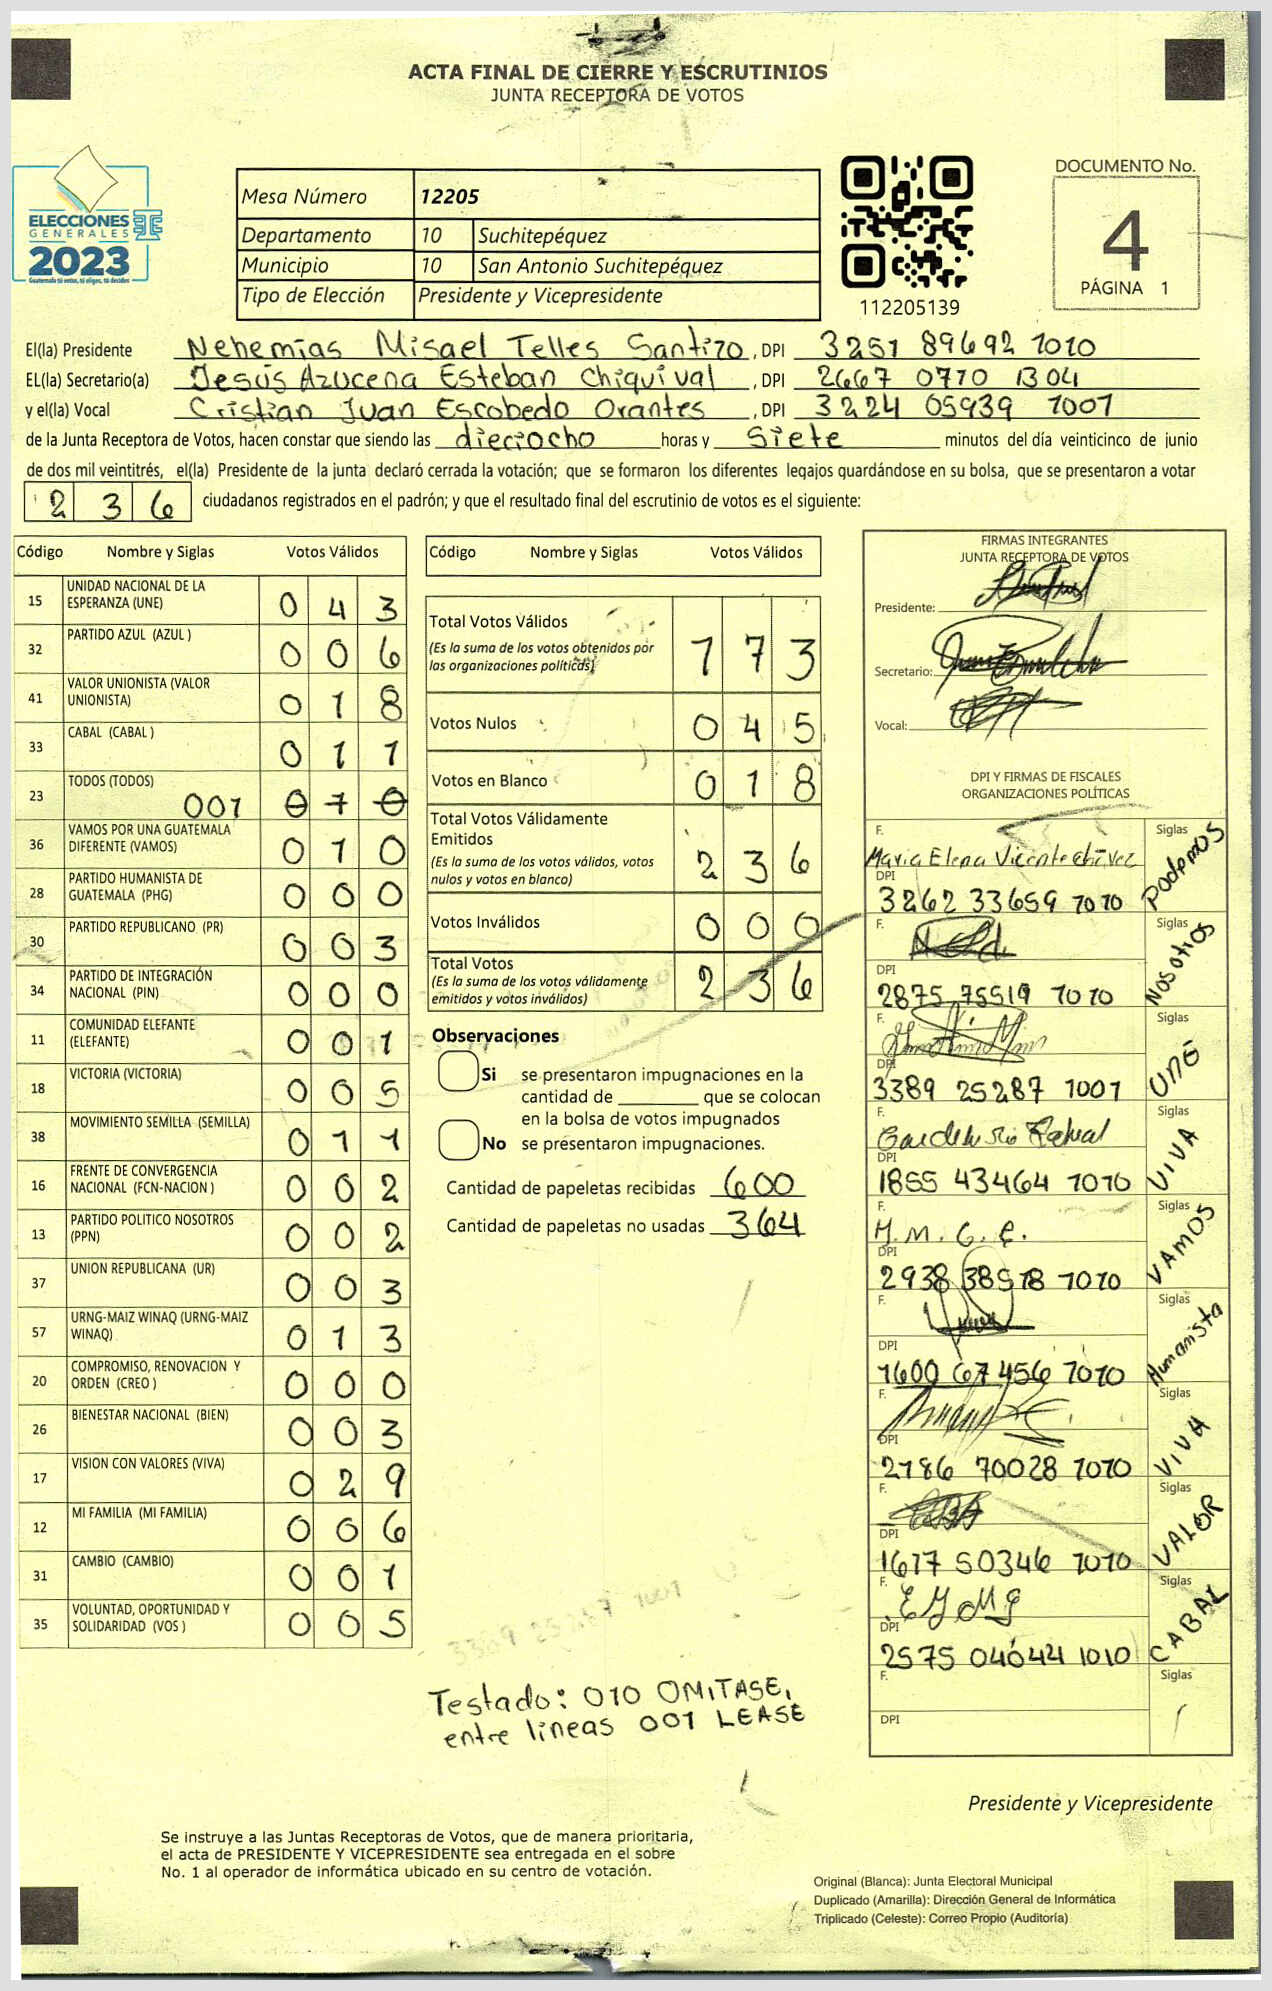 ACTA FINAL DE CIERRE Y ESCRUTINIOS
JUNTA RECEPTORA DE VOTOS
ELECCIONES
GENERALES
2023
Guatemala tú votas, tú eliges, tú decides
Mesa Número 12205
Departamento 10 Suchitepéquez
Municipio 10 San Antonio Suchitepéquez
Tipo de Elección Presidente y Vicepresidente
112205139
DOCUMENTO No.
4
PÁGINA 1
El(la) Presidente Nehemías Misael Telles Santizo, DPI 3251 89692 1010
EL(la) Secretario(a) Jesús Azucena Esteban Chiquival, DPI 2667 0770 1304
y el(la) Vocal Cristian Juan Escobedo Orantes, DPI 3224 05939 1001
de la Junta Receptora de Votos, hacen constar que siendo las dieciocho horas y siete minutos del día veinticinco de junio
de dos mil veintitrés, el(la) Presidente de la junta declaró cerrada la votación; que se formaron los diferentes legajos guardándose en su bolsa, que se presentaron a votar
236 ciudadanos registrados en el padrón; y que el resultado final del escrutinio de votos es el siguiente:
Código Nombre y Siglas Votos Válidos
15 UNIDAD NACIONAL DE LA ESPERANZA (UNE) 043
32 PARTIDO AZUL (AZUL ) 006
41 VALOR UNIONISTA (VALOR UNIONISTA) 018
33 CABAL (CABAL ) 011
23 TODOS (TODOS) 001 010
36 VAMOS POR UNA GUATEMALA DIFERENTE (VAMOS) 010
28 PARTIDO HUMANISTA DE GUATEMALA (PHG) 000
30 PARTIDO REPUBLICANO (PR) 003
34 PARTIDO DE INTEGRACIÓN NACIONAL (PIN) 000
11 COMUNIDAD ELEFANTE (ELEFANTE) 001
18 VICTORIA (VICTORIA) 005
38 MOVIMIENTO SEMILLA (SEMILLA) 011
16 FRENTE DE CONVERGENCIA NACIONAL (FCN-NACION ) 002
13 PARTIDO POLITICO NOSOTROS (PPN) 002
37 UNION REPUBLICANA (UR) 003
57 URNG-MAIZ WINAQ (URNG-MAIZ WINAQ) 013
20 COMPROMISO, RENOVACION Y ORDEN (CREO ) 000
26 BIENESTAR NACIONAL (BIEN) 003
17 VISION CON VALORES (VIVA) 029
12 MI FAMILIA (MI FAMILIA) 006
31 CAMBIO (CAMBIO) 001
35 VOLUNTAD, OPORTUNIDAD Y SOLIDARIDAD (VOS ) 005
Código Nombre y Siglas Votos Válidos
Total Votos Válidos 173
(Es la suma de los votos obtenidos por
las organizaciones políticas)
Votos Nulos 045
Votos en Blanco 018
Total Votos Válidamente
Emitidos 236
(Es la suma de los votos válidos, votos
nulos y votos en blanco)
Votos Inválidos 000
Total Votos 236
(Es la suma de los votos válidamente
emitidos y votos inválidos)
Observaciones
Si se presentaron impugnaciones en la
cantidad de ________ que se colocan
en la bolsa de votos impugnados
No se presentaron impugnaciones.
Cantidad de papeletas recibidas 600
Cantidad de papeletas no usadas 364
3389 25287 1001
Testado: 010 OMITASE,
entre lineas 001 LEASE
FIRMAS INTEGRANTES
JUNTA RECEPTORA DE VOTOS
Presidente:
Secretario:
Vocal:
DPI Y FIRMAS DE FISCALES
ORGANIZACIONES POLÍTICAS
F. Maria Elena Vicente chívez Siglas Podemos
DPI 3262 33659 1010
F. Siglas Nosotros
DPI 2875 75519 1010
F. Siglas UNE
DPI 3389 25287 1001
F. Siglas VIVA
DPI 1855 43464 1010
F. H. M. G. E. Siglas VAMOS
DPI 2938 38518 1010
F. Siglas Humanista
DPI 1600 67456 1010
F. Siglas VIVA
DPI 2186 70028 1010
F. Siglas VALOR
DPI 1617 50346 1010
F. Siglas CABAL
DPI 2575 04044 1010
F. Siglas
DPI
Presidente y Vicepresidente
Se instruye a las Juntas Receptoras de Votos, que de manera prioritaria,
el acta de PRESIDENTE Y VICEPRESIDENTE sea entregada en el sobre
No. 1 al operador de informática ubicado en su centro de votación.
Original (Blanca): Junta Electoral Municipal
Duplicado (Amarilla): Dirección General de Informática
Triplicado (Celeste): Correo Propio (Auditoría)